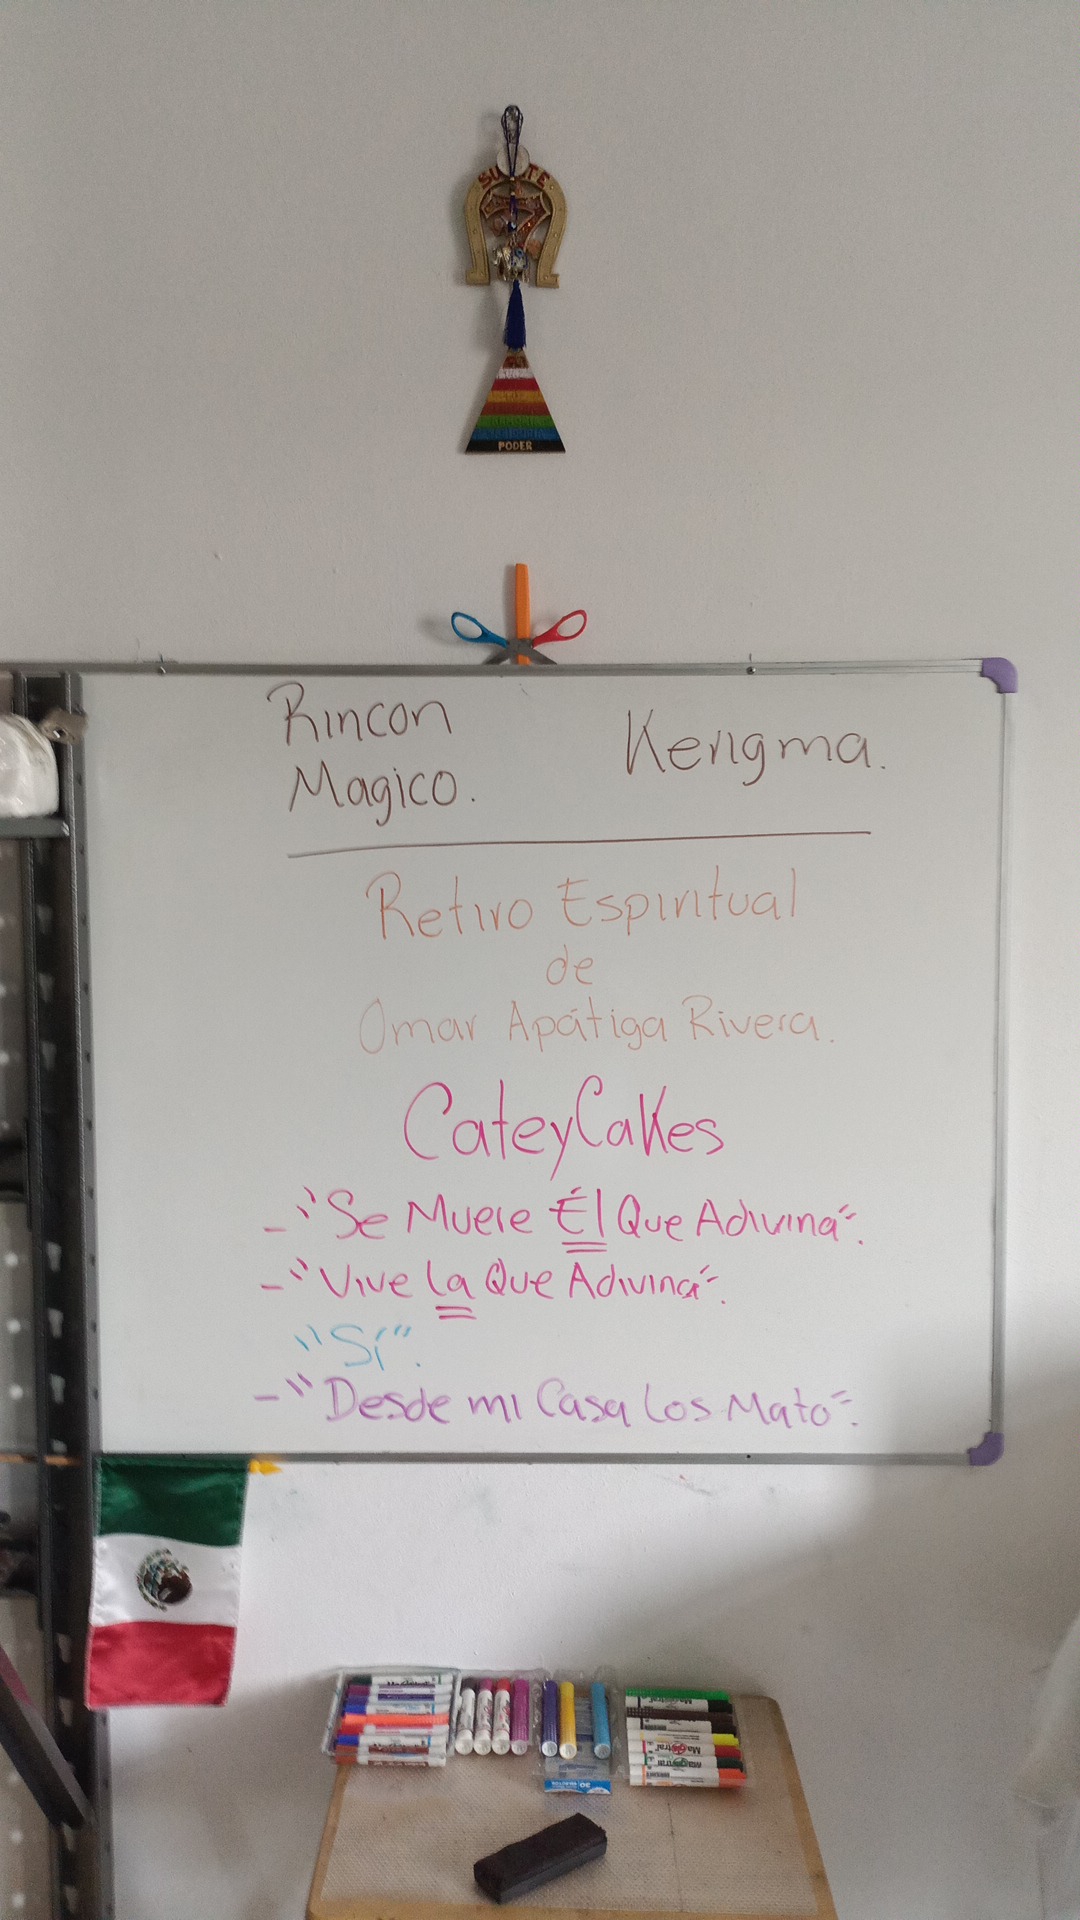 SUERTE
PODER
Rincon
Magico.
Kengma.
Retiro Espiritual
de
Omar Apátiga Rivera.
CateyCakes
- "Se Muere Él Que Adivina".
- "Vive la Que Adivina".
"Sí".
- "Desde mi Casa Los Mato".
Magistral
Magistral
Magistral